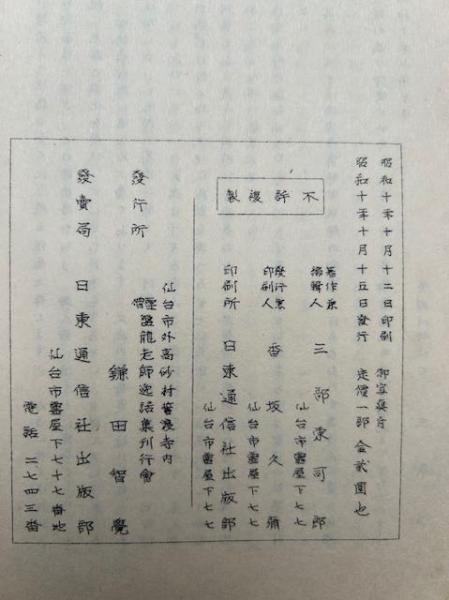 昭和十年十月十二日印刷
昭和十年十月十五日發行
定價一部 金貳圓也
不許複製
著作兼
編輯人
三部東可郎
仙台市雲屋下七七
發行兼
印刷人
香坂久彌
仙台市雲屋下七七
印刷所 日東通信社出版部
仙台市雲屋下七七
發行所
仙台市外高砂村
寺内
盤龍老師逸話集刊行會
鎌田智覺
發賣局 日東通信社出版部
仙台市雲屋下七十七番地
電話 二七四三番